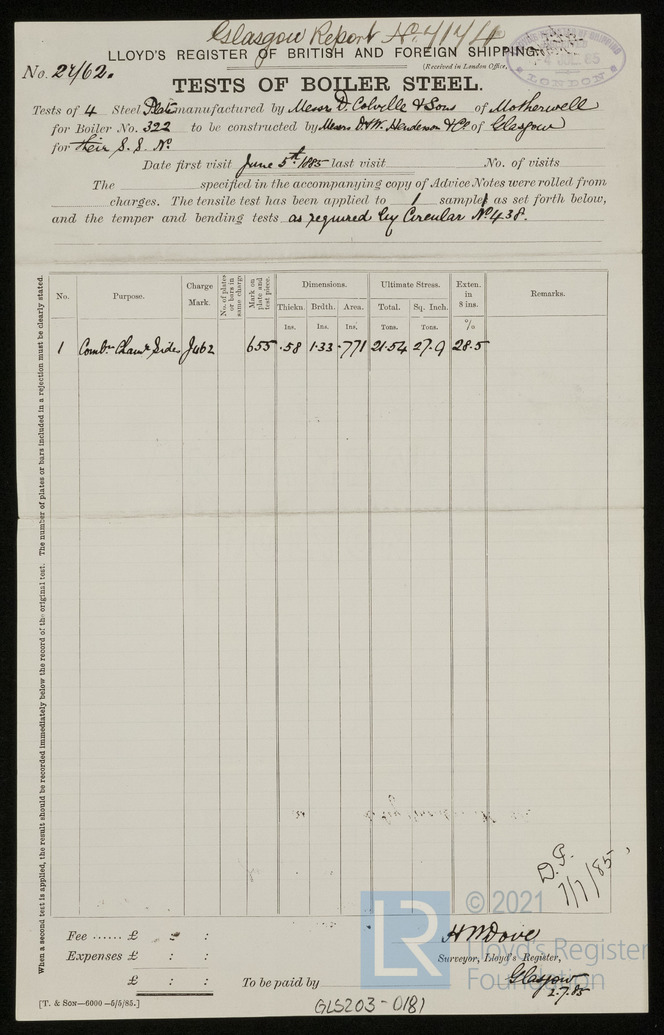 Glasgow Report No.
LLOYD'S REGISTER OF BRITISH AND FOREIGN SHIPPING.
(Received in London Office,
LONDON
No. 2762.
TESTS OF BOILER STEEL.
Tests of 4 Steel Plates manufactured by Messrs D. Colville & Sons of Motherwell
for Boiler No. 322 to be constructed by Messrs D. & W. Henderson & Co of Glasgow
for their S. S. No
Date first visit June 5th 1885 last visit No. of visits
The specified in the accompanying copy of Advice Notes were rolled from
charges. The tensile test has been applied to 1 sample as set forth below,
and the temper and bending tests as required by Circular No 438.
No. Purpose. Charge Mark. No. of plates or bars in same charge Mark on plate and test piece. Dimensions. Ultimate Stress. Exten. in 8 ins. Remarks.
Thickn. Brdth. Area. Total. Sq. Inch.
Ins. Ins. Ins. Tons. Tons. %
1 Combn Chamr Sides J462 655 .58 1.33 .771 21.54 27.9 28.5
When a second test is applied, the result should be recorded immediately below the record of the original test. The number of plates or bars included in a rejection must be clearly stated.
7/7/85
© 2021
Lloyd's Register
Foundation
LR
Fee ...... £ : :
Expenses £ : :
£ : :
H W Dove
Surveyor, Lloyd's Register,
To be paid by
Glasgow
2.7.85
[T. & Son—6000—5/5/85.]
GLS203-0181